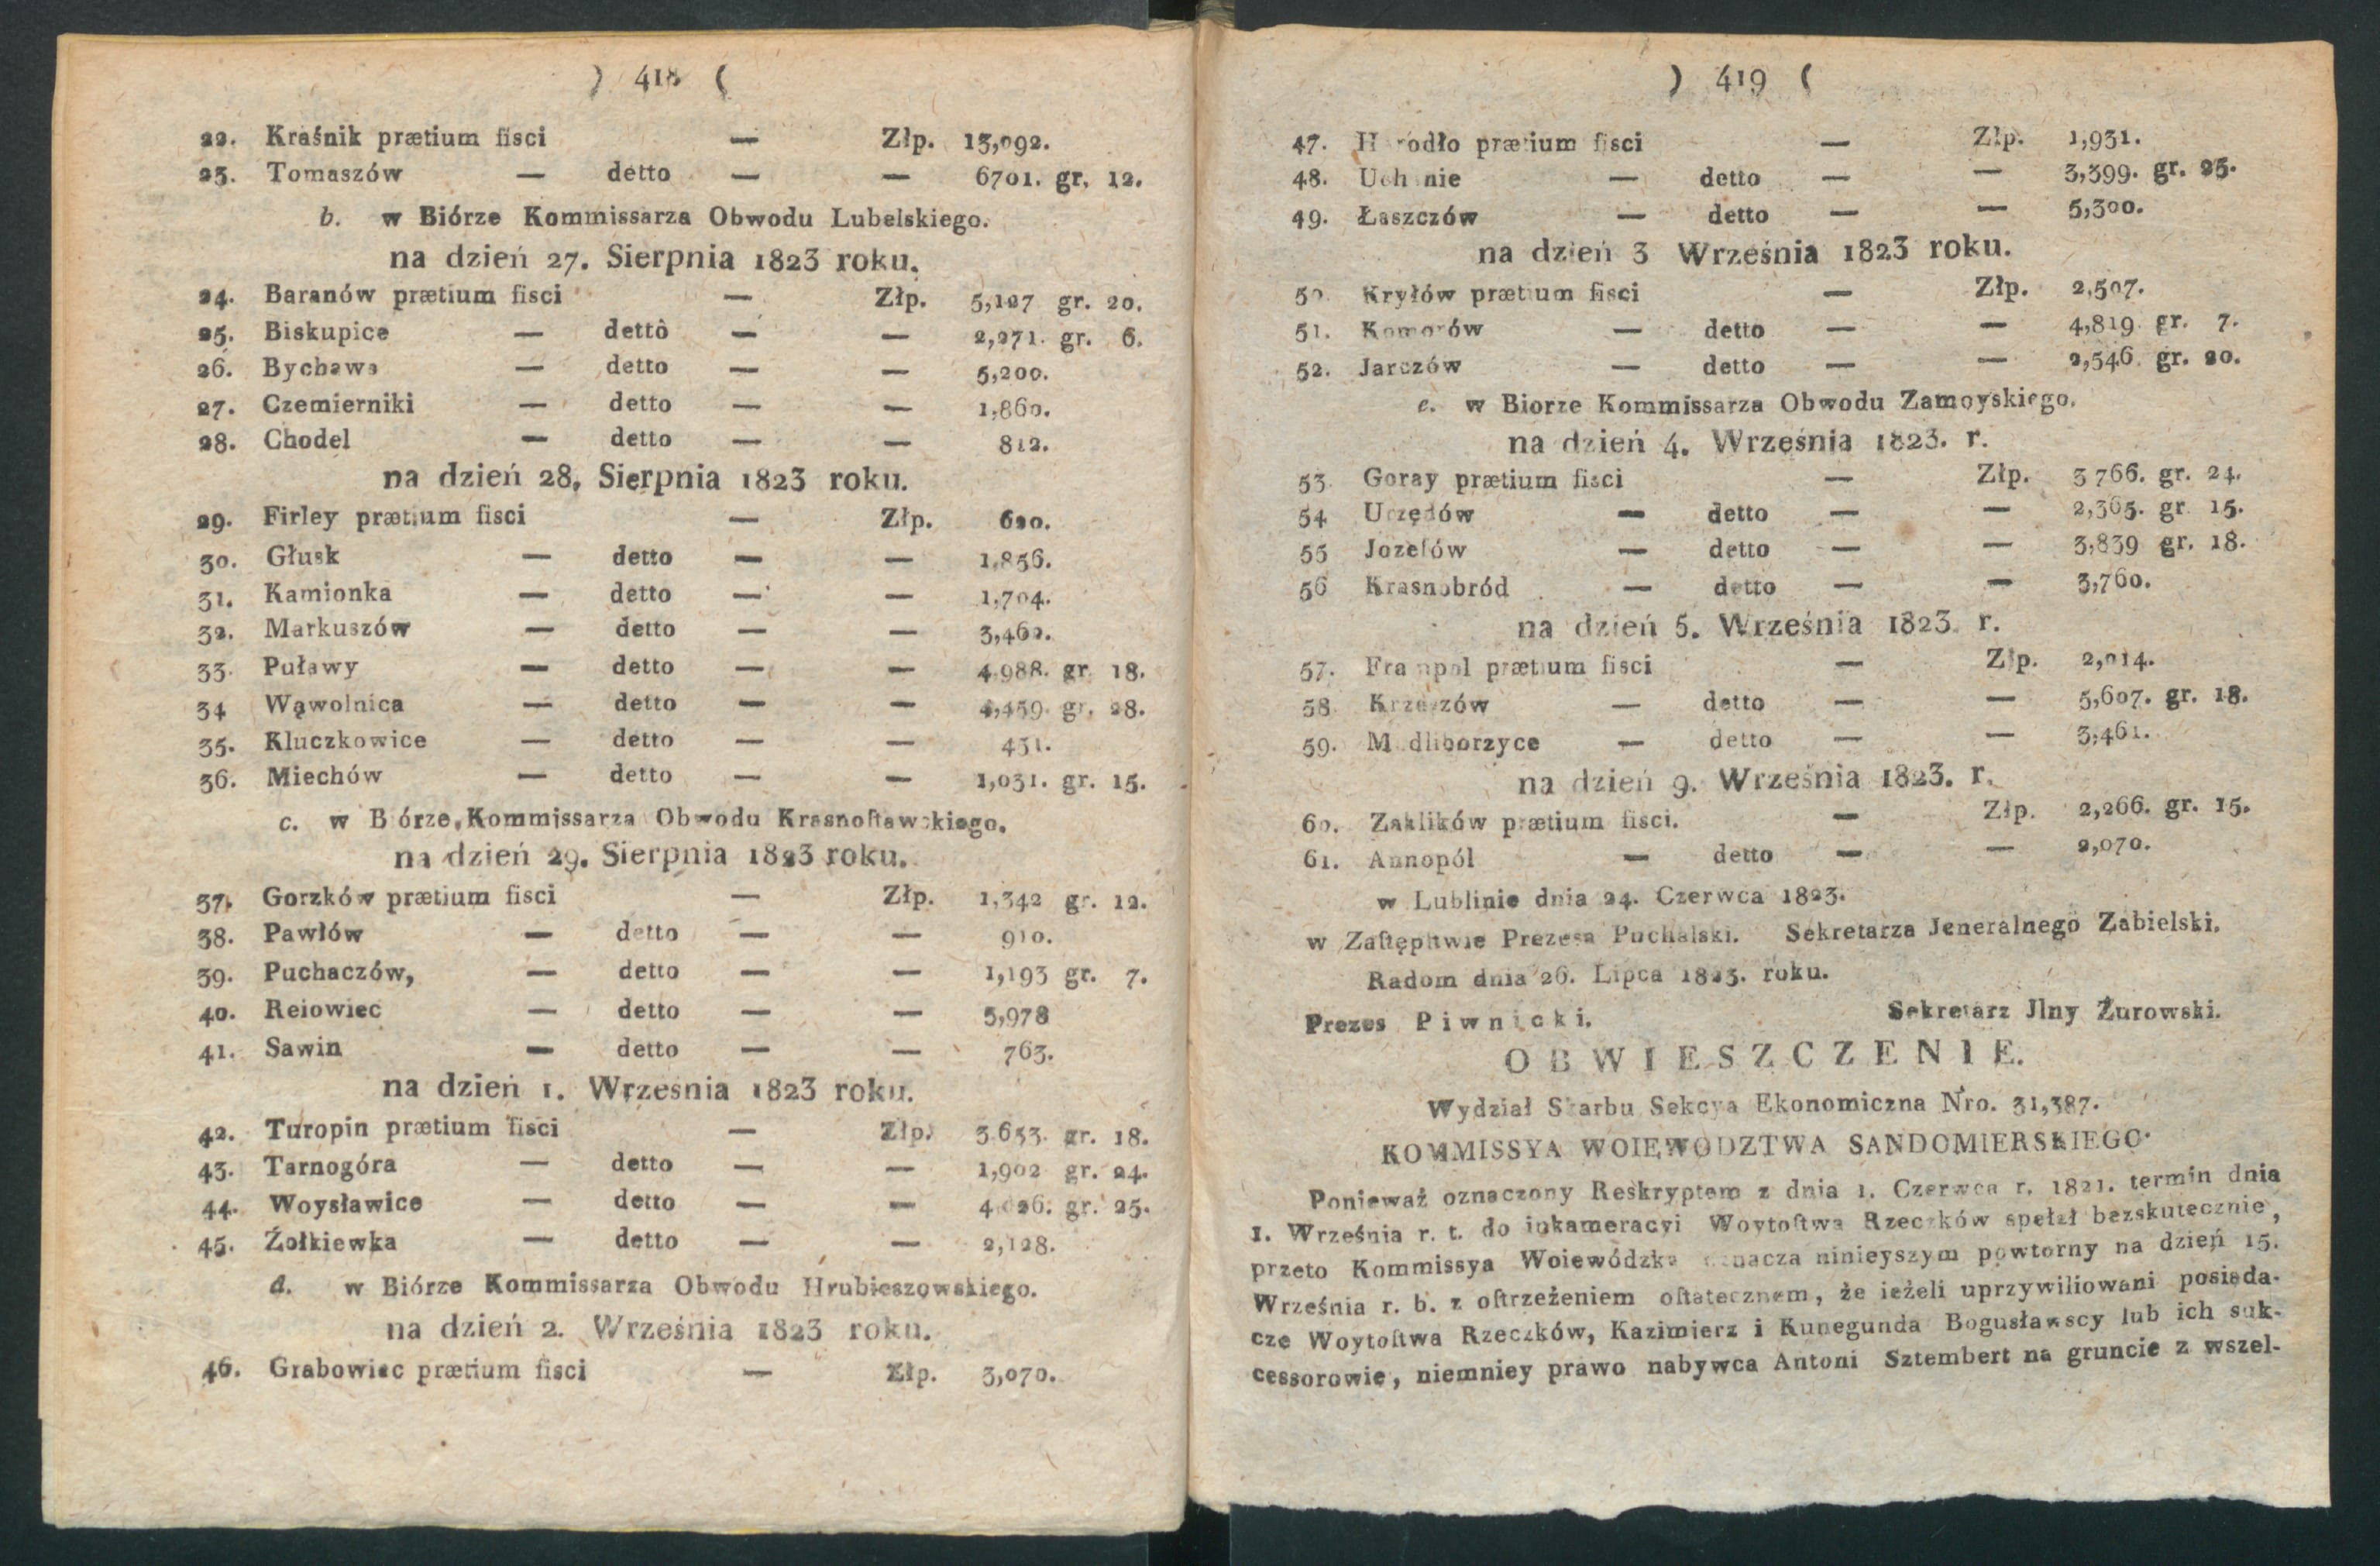 ) 418 (
22. Kraśnik prætium fisci — Złp. 13,092.
23. Tomaszów — detto — — 6701. gr. 12.
b. w Biórze Kommissarza Obwodu Lubelskiego.
na dzień 27. Sierpnia 1823 roku.
24. Baranów prætium fisci — Złp. 5,127 gr. 20.
25. Biskupice — detto — — 2,271. gr. 6.
26. Bychawa — detto — — 5,200.
27. Czemierniki — detto — — 1,860.
28. Chodel — detto — — 812.
na dzień 28, Sierpnia 1823 roku.
29. Firley prætium fisci — Złp. 620.
30. Głusk — detto — — 1,856.
31. Kamionka — detto — — 1,704.
32. Markuszów — detto — — 3,462.
33. Puławy — detto — — 4,988. gr. 18.
34 Wąwolnica — detto — — 4,459. gr. 28.
35. Kluczkowice — detto — — 431.
36. Miechów — detto — — 1,031. gr. 15.
c. w Biórze Kommissarza Obwodu Krasnoſtawskiego.
na dzień 29. Sierpnia 1823 roku.
37. Gorzków prætium fisci — Złp. 1,342 gr. 12.
38. Pawłów — detto — — 910.
39. Puchaczów, — detto — — 1,193 gr. 7.
40. Reiowiec — detto — — 5,978
41. Sawin — detto — — 763.
na dzień 1. Wrzesnia 1823 roku.
42. Turopin prætium fisci — Złp. 3,653. gr. 18.
43. Tarnogóra — detto — — 1,902 gr. 24.
44. Woysławice — detto — — 4,026. gr. 25.
45. Żołkiewka — detto — — 2,128.
d. w Biórze Kommissarza Obwodu Hrubieszowskiego.
na dzień 2. Września 1823 roku.
46. Grabowiec prætium fisci — Złp. 3,070.
) 419 (
47. Horodło prætium fisci — Złp. 1,931.
48. Uchanie — detto — — 3,399. gr. 25.
49. Łaszczów — detto — — 5,300.
na dzień 3 Września 1823 roku.
50. Kryłów prætium fisci — Złp. 2,507.
51. Komorów — detto — — 4,819 gr. 7.
52. Jarczów — detto — — 2,546. gr. 20.
e. w Biorze Kommissarza Obwodu Zamoyskiego.
na dzień 4. Września 1823. r.
53. Goray prætium fisci — Złp. 3 766. gr. 24.
54 Urzędów — detto — — 2,365. gr. 15.
55 Jozefów — detto — — 3,839 gr. 18.
56 Krasnobród — detto — — 3,760.
na dzień 5. Września 1823. r.
57. Frampol prætium fisci — Złp. 2,014.
58 Krzeszów — detto — — 5,607. gr. 18.
59. Modliborzyce — detto — — 3,461.
na dzień 9. Września 1823. r.
60. Zaklików prætium fisci. — Złp. 2,266. gr. 15.
61. Annopól — detto — — 2,070.
w Lublinie dnia 24. Czerwca 1823.
w Zaſtępſtwie Prezesa Puchalski. Sekretarza Jeneralnego Zabielski.
Radom dnia 26. Lipca 1823. roku.
Prezes Piwnicki. Sekretarz Jlny Żurowski.
OBWIESZCZENIE.
Wydział Skarbu Sekcya Ekonomiczna Nro. 31,387.
KOMMISSYA WOIEWODZTWA SANDOMIERSKIEGO.
Ponieważ oznaczony Reskryptem z dnia 1. Czerwca r. 1821. termin dnia
1. Września r. t. do inkameracyi Woytoſtwa Rzeczków spełzł bezskutecznie,
przeto Kommissya Woiewódzka oznacza ninieyszym powtorny na dzień 15.
Września r. b. z oſtrzeżeniem oſtatecznem, że ieżeli uprzywiliowani posiada-
cze Woytoſtwa Rzeczków, Kazimierz i Kunegunda Bogusławscy lub ich suk-
cessorowie, niemniey prawo nabywca Antoni Sztembert na gruncie z wszel-